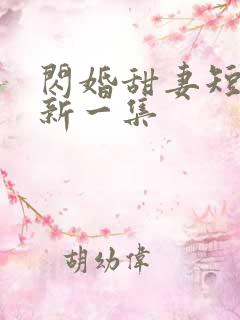 閃婚甜妻短
新一集
胡幼偉